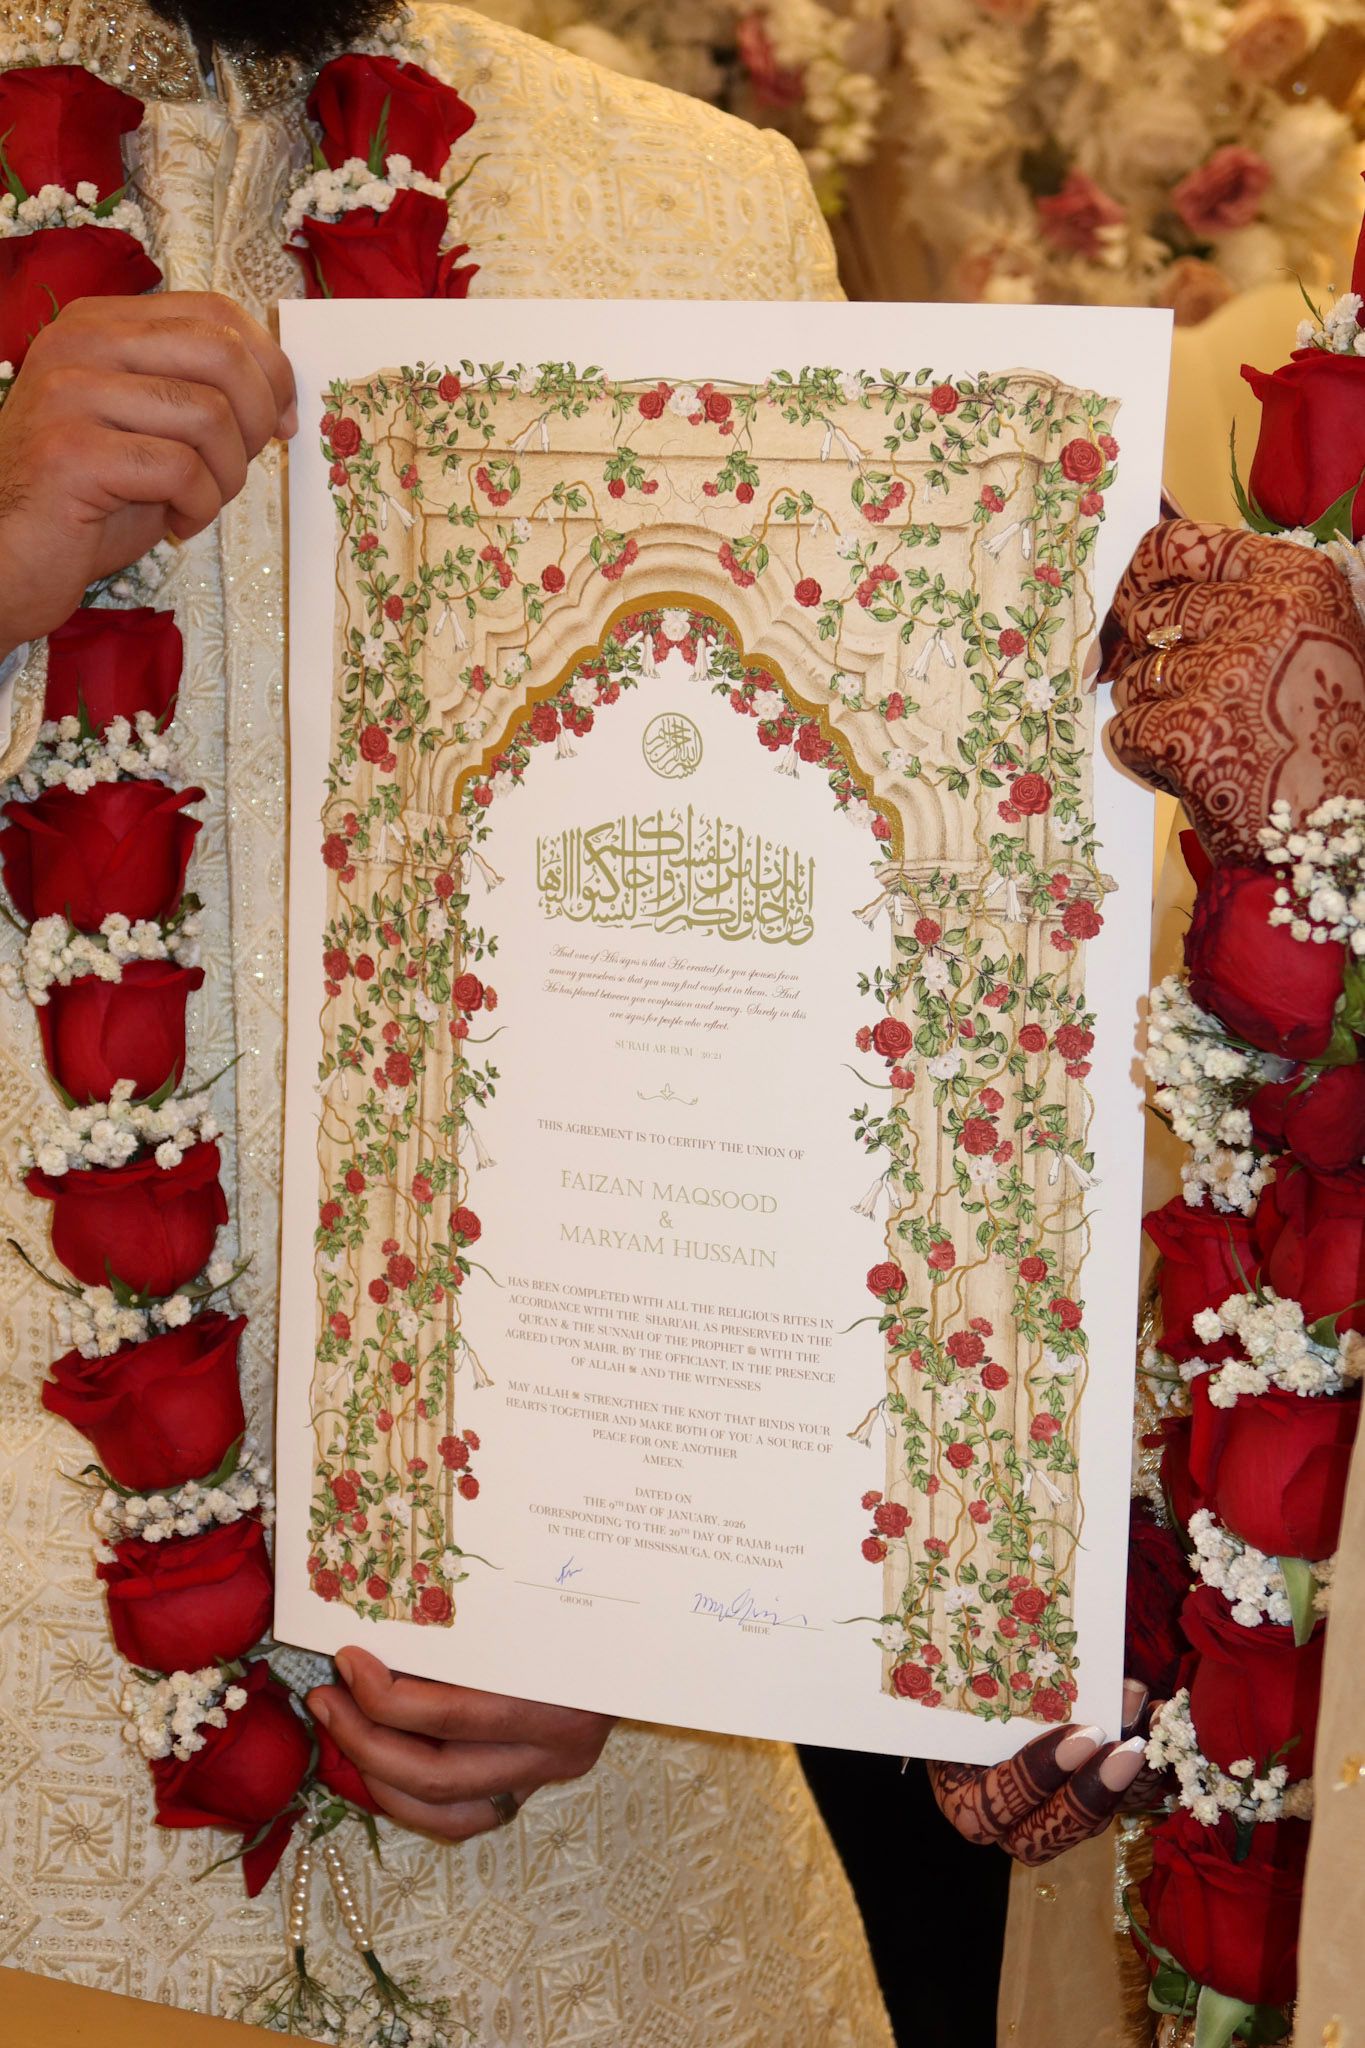 بسم الله الرحمن الرحيم
ومن آياته أن خلق لكم من أنفسكم أزواجا لتسكنوا إليها
And one of His signs is that He created for you spouses from
among yourselves so that you may find comfort in them. And
He has placed between you compassion and mercy. Surely in this
are signs for people who reflect.
SURAH AR-RUM 30:21
THIS AGREEMENT IS TO CERTIFY THE UNION OF
FAIZAN MAQSOOD
&
MARYAM HUSSAIN
HAS BEEN COMPLETED WITH ALL THE RELIGIOUS RITES IN
ACCORDANCE WITH THE SHARI'AH, AS PRESERVED IN THE
QUR'AN & THE SUNNAH OF THE PROPHET ﷺ WITH THE
AGREED UPON MAHR, BY THE OFFICIANT, IN THE PRESENCE
OF ALLAH AND THE WITNESSES
MAY ALLAH STRENGTHEN THE KNOT THAT BINDS YOUR
HEARTS TOGETHER AND MAKE BOTH OF YOU A SOURCE OF
PEACE FOR ONE ANOTHER
AMEEN.
DATED ON
THE 9TH DAY OF JANUARY, 2026
CORRESPONDING TO THE 20TH DAY OF RAJAB 1447H
IN THE CITY OF MISSISSAUGA, ON, CANADA
GROOM
BRIDE